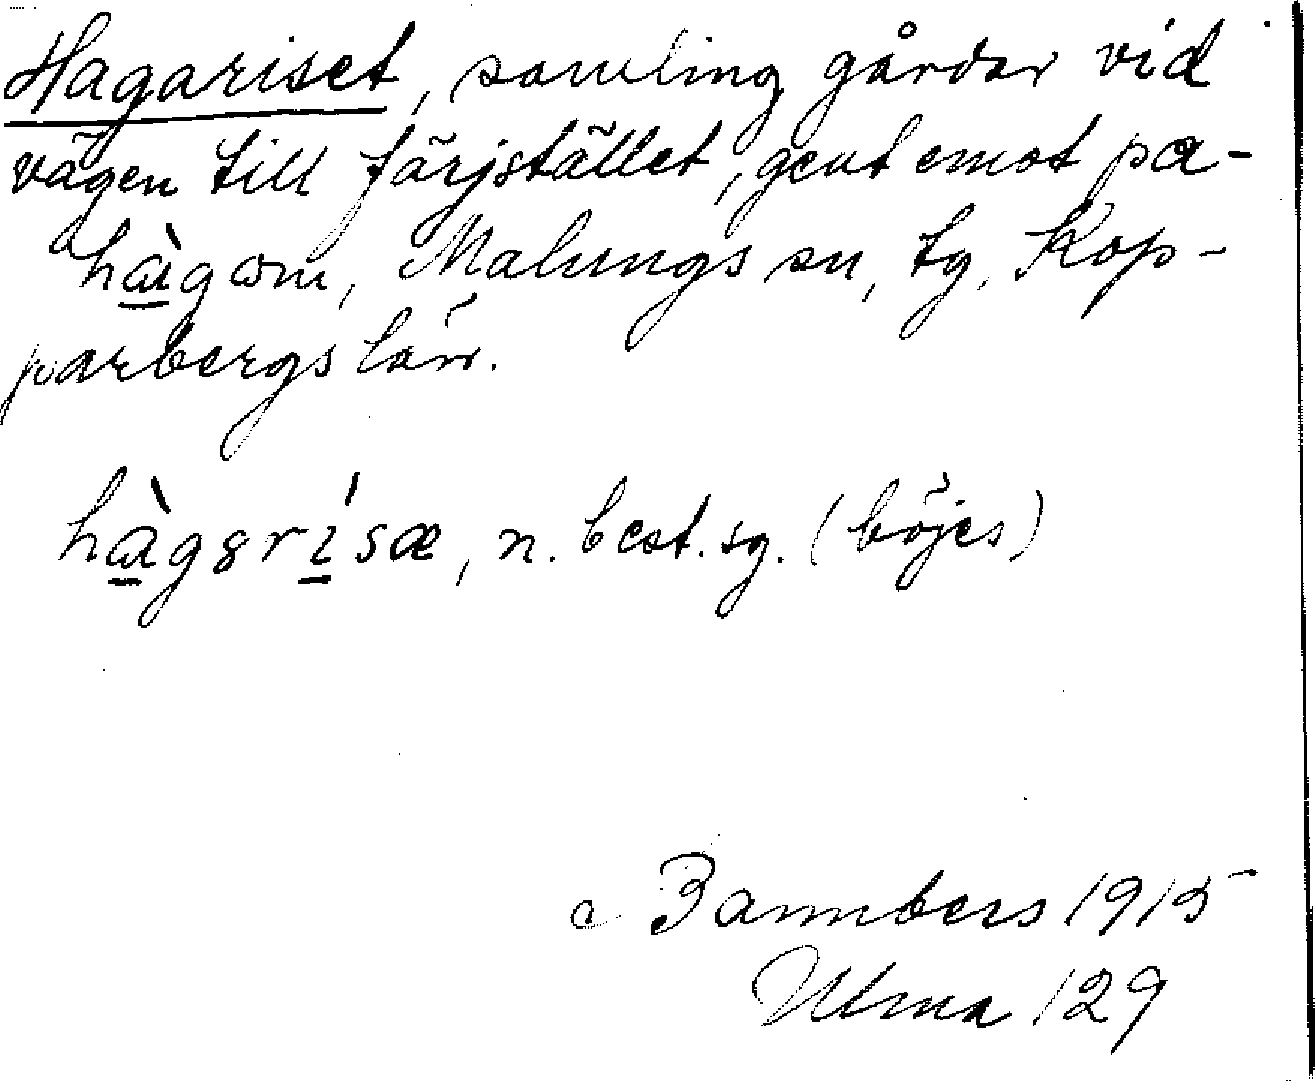 Hagariset, samling gårdar vid
vägen till färjstället, gent emot pa-
hàgom, Malungs sn, tg, Kop-
parbergs län.
hàgsrísæ, n. best. sg. (böjes)
Bannbers 1915
Ulma 129